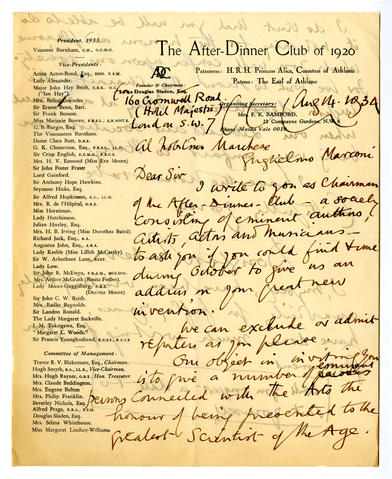 President, 1933.
Viscount Burnham, C.H., G.C.M.G.
Vice-Presidents:
Acton Acton-Bond, Esq., HON. R.A.M.
Lady Alexander.
Major John Hay Beith, C.B.E., M.C.
("Ian Hay")
Mrs. Belloc Lowndes.
Sir Ernest Benn, Bart.
Sir Frank Benson.
Miss Marjorie Bowen,
G. B. Burgin, Esq.
The Viscountess Burnham.
Dame Clara Butt, D.B.E.
G. K. Chesterton, Esq.
Sir Crisp English, K.C.M.G.
Mrs. H. V. Esmond (Miss Eva Moore).
Sir John Foster Fraser
Lord Gainford.
Sir Anthony Hope Hawkins.
Seymour Hicks, Esq.
Sir Alfred Hopkinson, K.C.
Mrs. R. de l'Hôpital, O.B.E.
Miss Horniman.
Lady Hutchinson.
Julian Huxley, Esq.
Mrs. H. B. Irving (Miss Dorothea Baird).
Richard Jack, Esq., R.A.
Augustus John, Esq., A.R.A.
Lady Keeble (Miss Lillah McCarthy).
Sir W. Arbuthnot Lane, BART.
Lady Low.
Sir John B. McEwen,
Mrs. Arthur McGrath (Rosita Forbes).
Lady Moore-Guggisberg,
(Decima Moore)
Sir John C. W. Reith.
Mrs. Baillie Reynolds.
Sir Landon Ronald.
The Lady Margaret Sackville.
I. M. Tokugawa, Esq.
"Margaret L. Woods."
Sir Francis Younghusband, K.C.S.I., K.C.I.E
Committee of Management:
Trevor R. V. Blakemore, Esq., Chairman.
Hugh Smyth, Esq., Vice-Chairman.
Mrs. Hugh Rayner, O.B.E., Hon. Treasurer.
Mrs. Claude Beddington.
Mrs. Eugene Bolton
Mrs. Philip Franklin.
Beverley Nichols, Esq.
Alfred Praga, F.S.A.
Douglas Sladen, Esq.
Mrs. Selma Whitehouse.
Miss Margaret Lindsay-Williams
The After-Dinner Club of 1920
Patroness: H.R.H. Princess Alice, Countess of Athlone
Patron: The Earl of Athlone
ADC
Founder and Chairman
Douglas Sladen, Esq.
Organising Secretary:
Miss F. K. BAMFORD,
28 Compayne Gardens, N.W.6
Phone Maida Vale 0016
from
160 Cromwell Road
(Hotel Majestic)
London S.W. 7
Aug 14. 1934
Al Nobilmo Marchese
Guglielmo Marconi
Dear Sir
I write to you as Chairman
of the After-Dinner-Club – a society
consisting of eminent authors,
Artists, actors and Musicians –
to ask you if you could find time
during October to give us an
address on your great new
invention.
We can exclude or admit
reporters as you please.
Our object in inviting you
is to give a number of eminent
persons connected with the Arts the
honour of being presented to the
greatest Scientist of the Age.